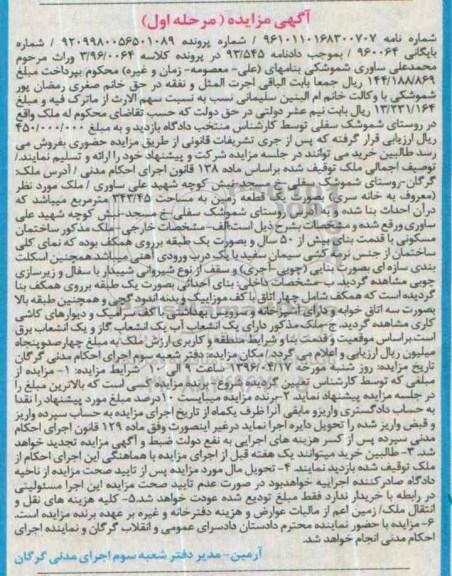 آگهی مزایده ( مرحله اول)
شماره نامه ۹۶۱۰۱۱۰۱۶۸۳۰۰۷۰۷ / شماره پرونده ۹۲۰۹۹۸۰۰۵۶۵۰۱۰۸۹ / شماره
بایگانی ۹۶۰۰۶۴ / بموجب دادنامه ۹۳/۵۴۵ در پرونده کلاسه ۳/۹۶/۰۰۶۴ وراث مرحوم
محمدعلی ساوری شموشکی بنامهای (علی- معصومه- زمان و غیره) محکوم بپرداخت مبلغ
۱۴۴/۱۸۸/۸۶۹ ریال جمعا بابت الباقی اجرت المثل و نفقه در حق خانم صغری رمضان پور
شموشکی با وکالت خانم ام البنین سلیمانی نسب به نسبت سهم الارث از ماترک فیه و مبلغ
۱۳/۲۳۱/۱۶۴ ریال بابت نیم عشر دولتی در حق دولت که حسب تقاضای محکوم له ملک واقع
در روستای شموشک سفلی توسط کارشناس منتخب دادگاه بازدید و به مبلغ ۴۵۰/۰۰۰/۰۰۰
ریال ارزیابی قرار گرفته که پس از جری تشریفات قانونی از طریق مزایده حضوری بفروش می
رسد طالبین خرید می توانند در جلسه مزایده شرکت و پیشنهاد خود را ارائه و تسلیم نمایند./
توصیف اجمالی ملک توقیف شده براساس ماده ۱۳۸ قانون اجرای احکام مدنی / آدرس ملک:
گرگان-روستای شموشک سفلی خ مسجد-نبش کوچه شهید علی ساوری / ملک مورد نظر
(معروف به خانه سری) بصورت یک قطعه زمین به مساحت ۳۴۳/۴۵ مترمربع میباشد که
درآن احداث بنا شده و به آدرس روستای شموشک سفلی خ مسجد-نبش کوچه شهید علی
ساوری ورقع شده و مشخصات بشرح ذیل است:الف-مشخصات خارجی: ملک مذکور ساختمان
مسکونی با قدمت بنای بیش از ۵۰ سال و بصورت یک طبقه برروی همکف بوده که نمای کلی
ساختمان از جنس نرمه کشی سیمان سفید با یک درب ورودی آهنی میباشد همچنین اسکلت
بندی سازه ای بصورت بنایی (چوبی -آجری) و سقف از نوع شیروانی شیبدار با سفال و زیرسازی
چوبی مشاهده گردید. ب- مشخصات داخلی: بنای احداثی بصورت یک طبقه برروی همکف بنا
گردیده است که همکف شامل چهار اتاق با کف موزاییک و بدنه اندود گچی و همچنین طبقه بالا
بصورت سه اتاق خوابه و دارای آشپزخانه و سرویس بهداشتی با کف سرامیک و دیوارهای کاشی
کاری مشاهده گردید. ج-ملک مذکور دارای یک انشعاب آب یک انشعاب گاز و یک انشعاب برق
است.براساس موقعیت و قدمت بنا و شرایط منطقه و کاربری ارزش ملک به مبلغ چهارصدوپنجاه
میلیون ریال ارزیابی و اعلام می گردد. / مکان مزایده: دفتر شعبه سوم اجرای احکام مدنی گرگان
تاریخ مزایده: روز شنبه مورخه ۱۳۹۶/۰۴/۱۷ ساعت ۹ الی ۱۰ شرایط مزایده: ۱- مزایده از
مبلغی که توسط کارشناس تعیین گردیده شروع- برنده مزایده کسی است که بالاترین مبلغ را
در جلسه مزایده پیشنهاد نماید. ۲-برنده مزایده میبایست ۱۰درصد مبلغ مورد پیشنهاد را نقدا
به حساب دادگستری واریزو مابقی آنرا ظرف یکماه از تاریخ اجرای مزایده به حساب سپرده واریز
و قبض واریز شده را تحویل دایره اجرا نماید درغیر اینصورت وفق ماده ۱۲۹ قانون اجرای احکام
مدنی سپرده پس از کسر هزینه های اجرایی به نفع دولت ضبط و آگهی مزایده تجدید خواهد
شد. ۳-طالبین خرید میتوانند یک هفته قبل از اجرای مزایده با هماهنگی این اجرای احکام از
ملک توقیف شده بازدید نمایند. ۴- تحویل مال مورد مزایده پس از تایید صحت مزایده از ناحیه
دادگاه صادرکننده اجراییه خواهدبود در صورت عدم تایید صحت مزایده این اجرا مسئولیتی
در رابطه با خریدار ندارد فقط مبلغ تودیع شده عودت خواهد شد.۵- کلیه هزینه های نقل و
انتقال ملک/ زمین اعم از مالیات عوارض و هزینه دفترخانه و غیره بر عهده برنده مزایده است.
۶-مزایده با حضور نماینده محترم دادستان دادسرای عمومی و انقلاب گرگان و نماینده اجرای
احکام مدنی انجام خواهد شد.
آرمین- مدیر دفتر شعبه سوم اجرای مدنی گرگان